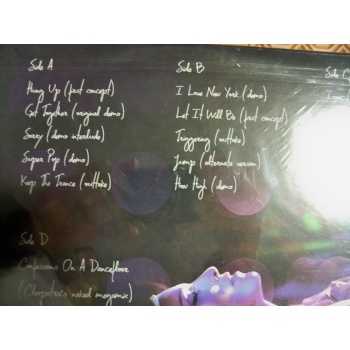 Side A
Hung Up (first concept)
Get Together (original demo)
Sorry (demo interlude)
Super Pop (demo)
Keep The Trance (outtake)
Side B
I Love New York (demo)
Let It Will Be (first concept)
Triggering (outtake)
Jump (alternate version)
How High (demo)
Side C
Side D
Confessions On A Dancefloor
(Cleopatra's naked megamix)